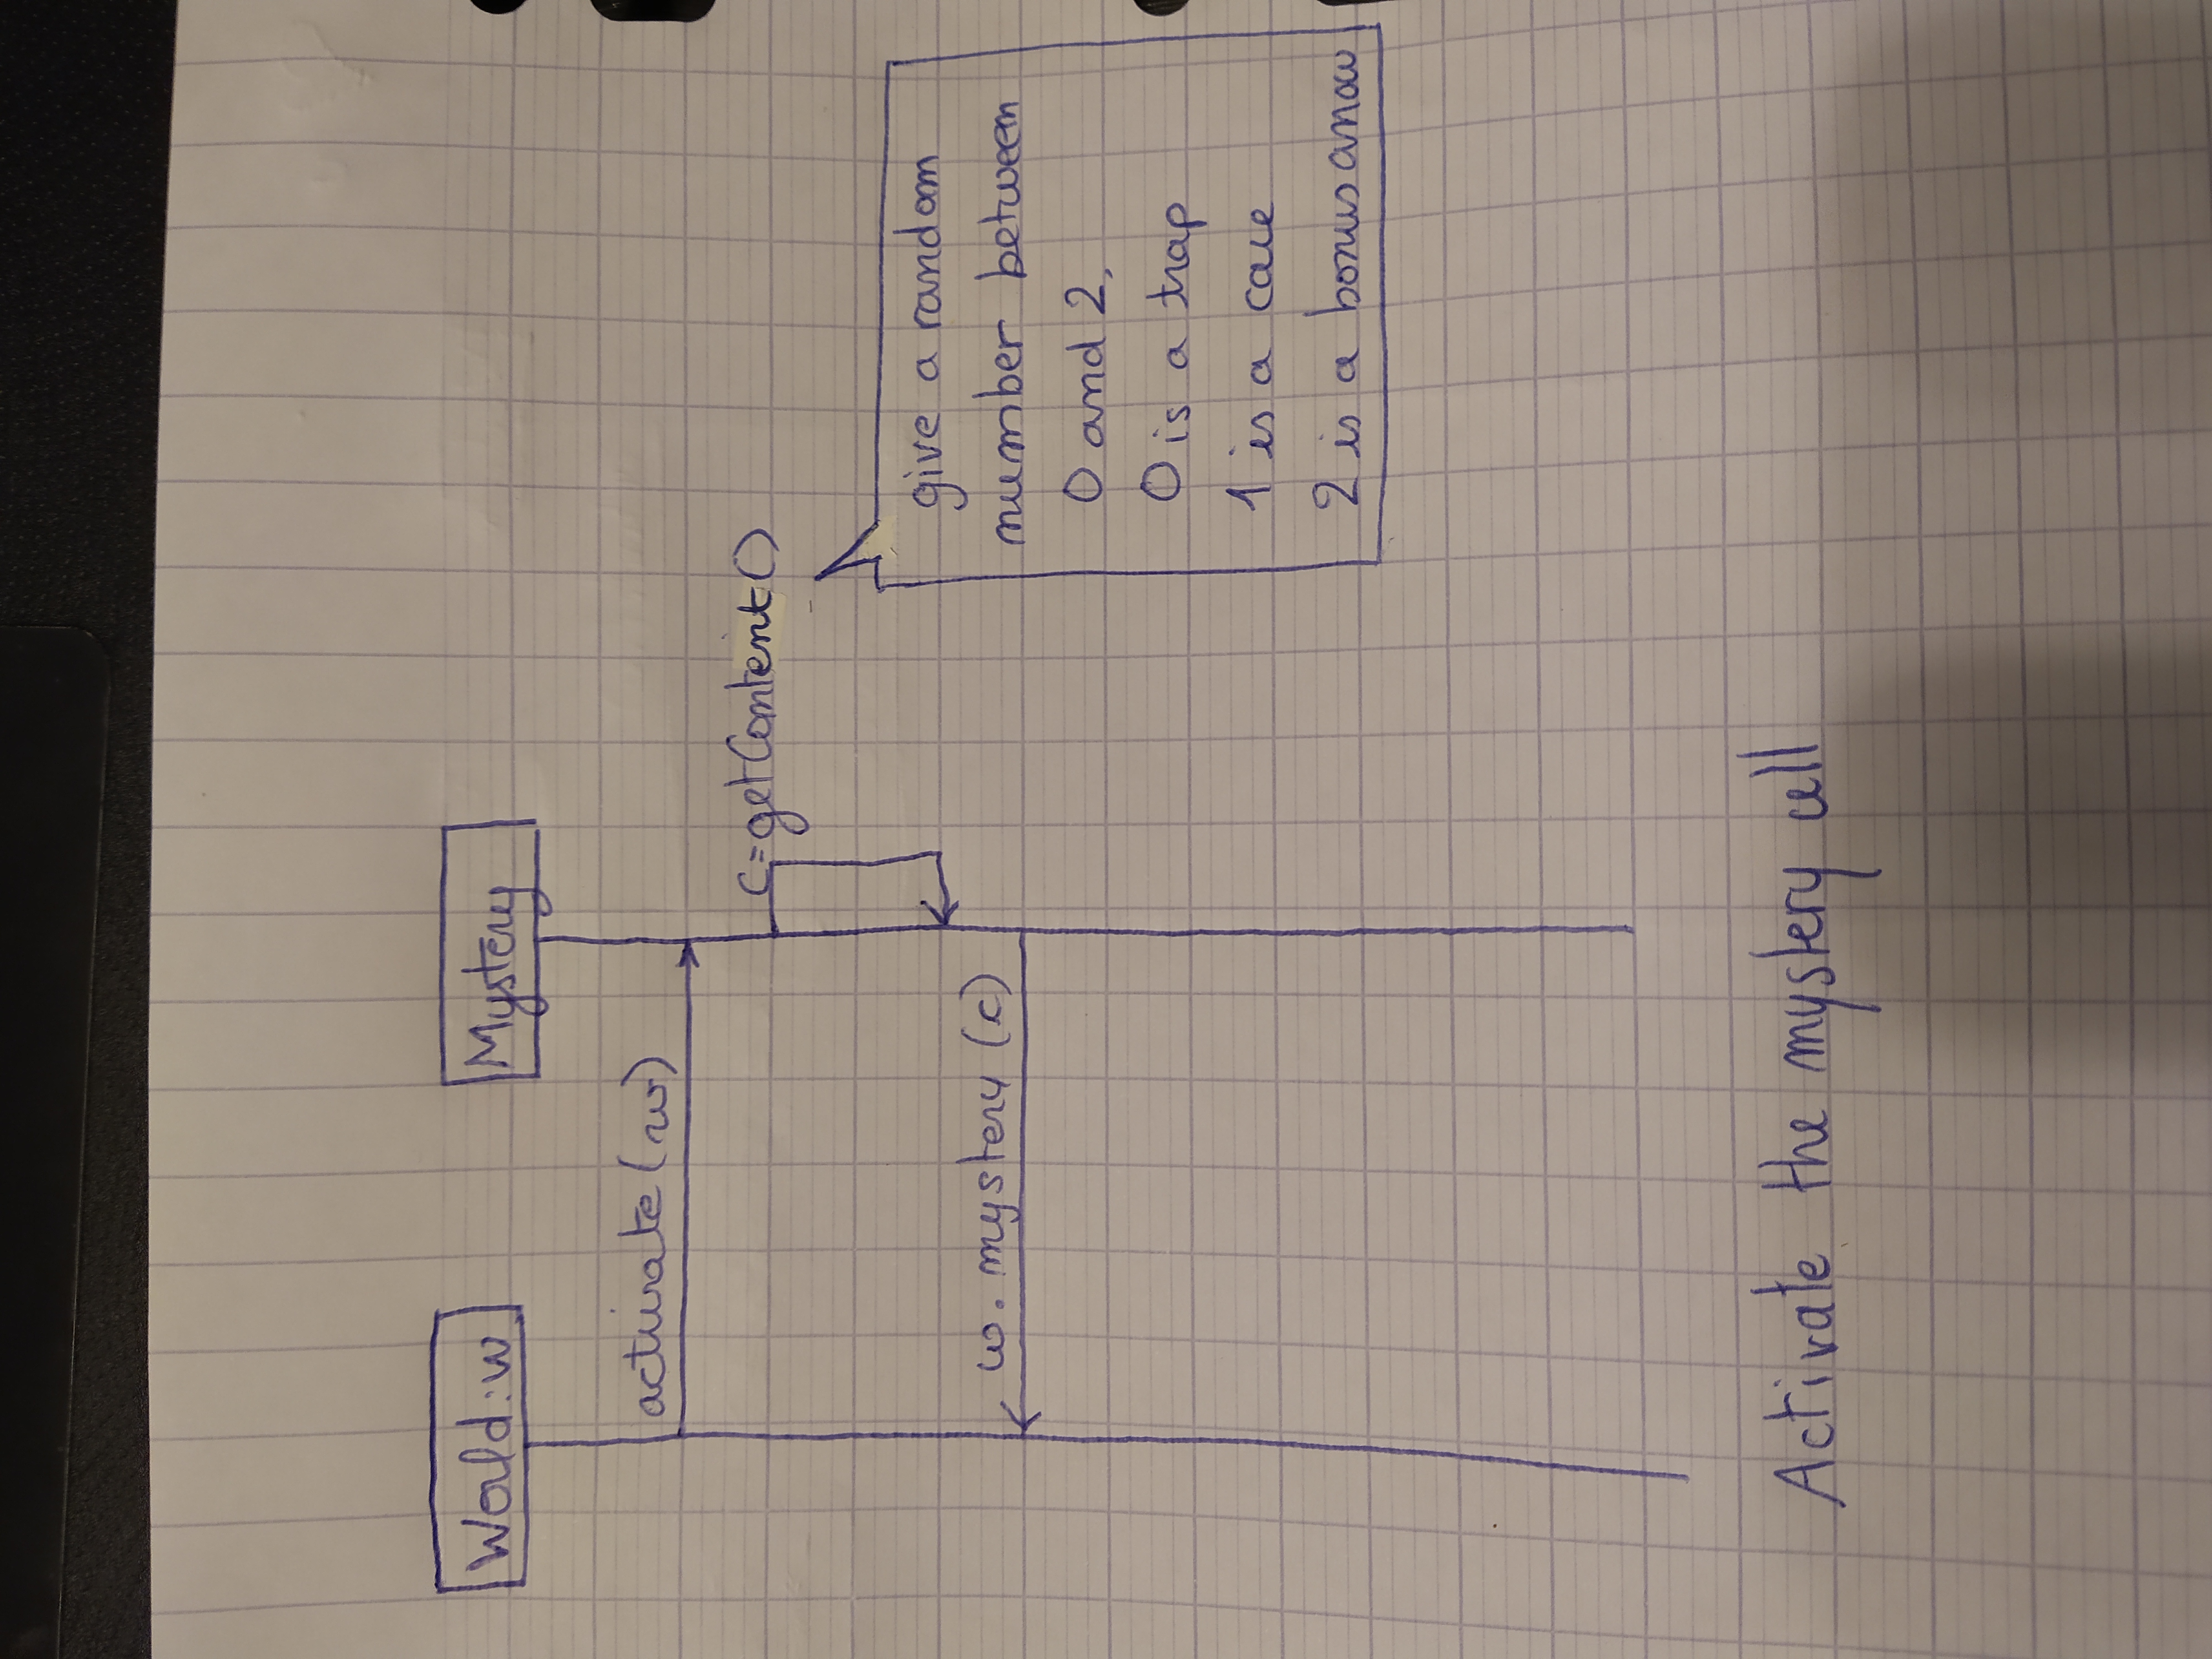 World:w
Mystery
activate(w)
c=getContent()
w.mystery(c)
give a random
number between
0 and 2,
0 is a trap
1 is a cave
2 is a bonus arrow
Activate the mystery cell